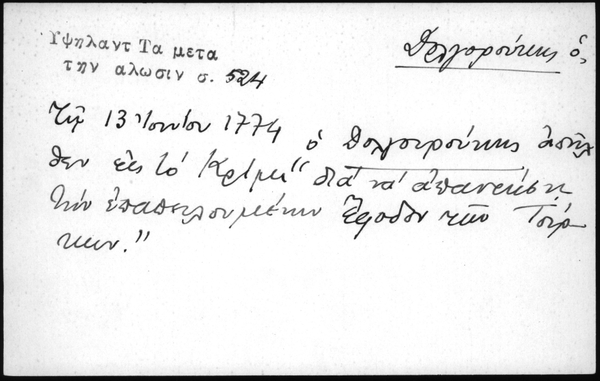 Υψηλαντ Τα μετα
την αλωσιν σ. 524
Δολγορούκης ὁ,
Τῇ 13 Ἰουνίου 1774 ὁ Δολγορούκης ἀπῆλ
θεν εἰς τὸ Κρίμι "διὰ νὰ ἀπαντήσῃ
τὴν ἐπαπειλουμένην ἔφοδον τῶν Τούρ
κων."